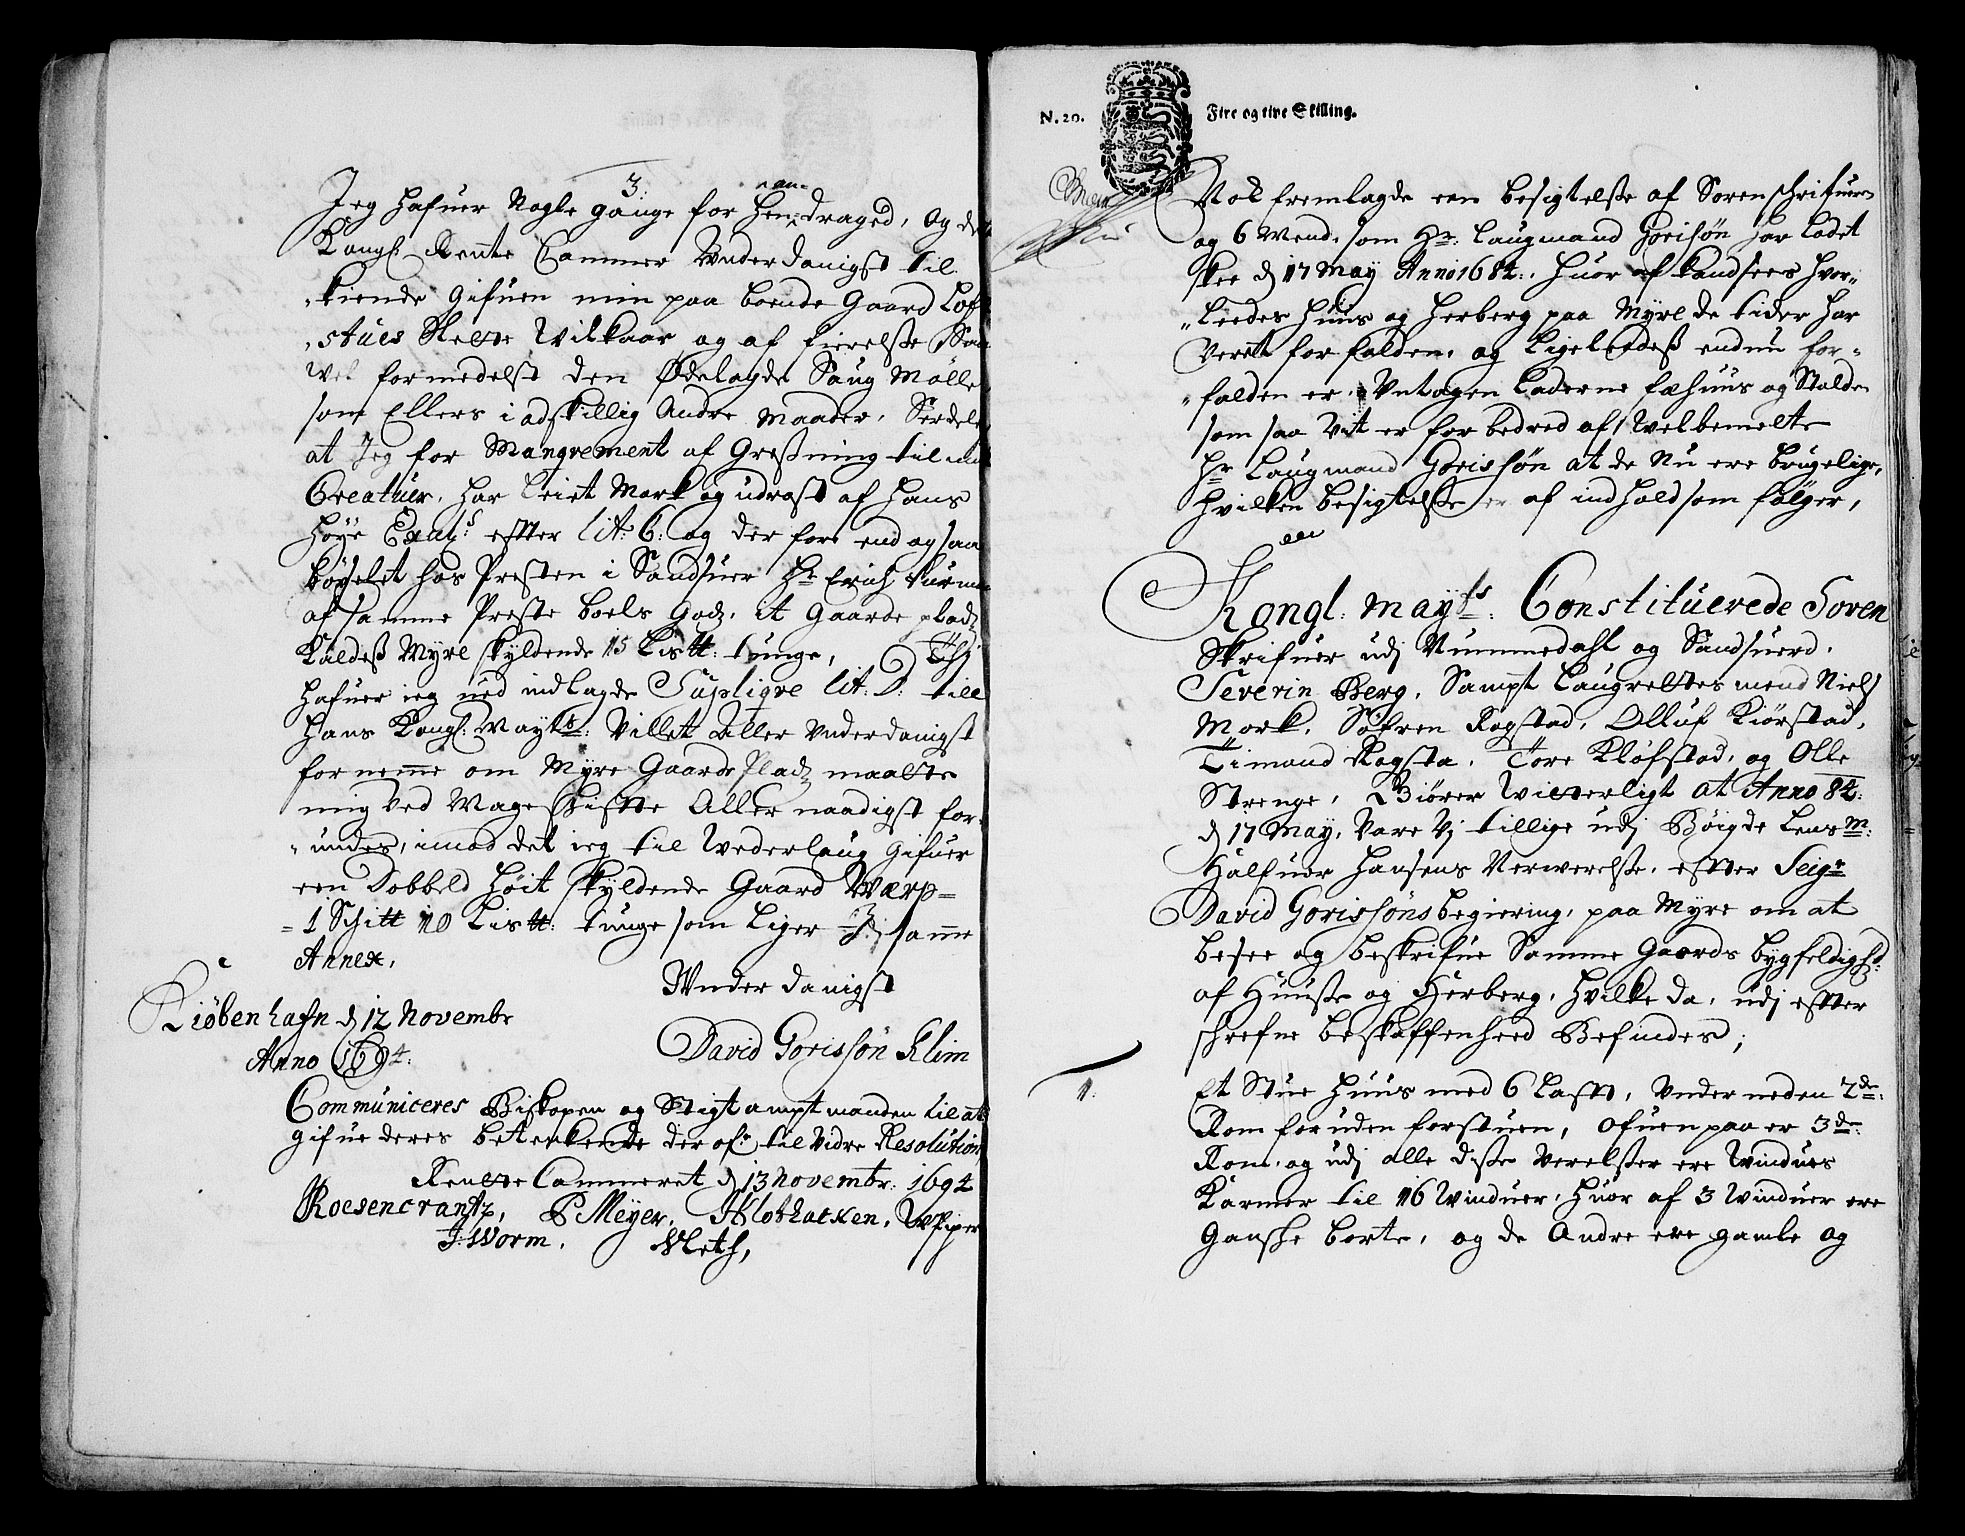 3.
Jeg hafuer Nogle gange for hen andraged, og de
Kongl. Rente Cammer Vnderdanigst til
kiende Gifuen min paa boende Gaard Lof
stues Slette Vilkaar og af fierelse Saa
vel formedelst den Ødelagde Saug Mølle
som Ellers i adskillig Andre Maader. Serdele
at Jeg for Mangrement af Gressning til mi
Creatuer, har leiet Mark og udrast af Hans
Høye Excel:s effter lit: C: og der fore end og saa
bøxelet hos Presten i Sandsuer Hr Erich
af samme Preste boels Godz, it Gaarde pladz
Kaldess Myre skyldende 15 List: tunge, Thj
hafuer ieg ued indlagde Supliqve lit: D: till
Hans Kongl: Maytts: Villet Aller Vnderdanigst
fornemme om Myre Gaards Pladz maatte
mig ved Mageskiffte Aller naadigst for-
undes, imod det ieg til Wederlaug Gifuer
een Dobbeld høit skyldende Gaard Wærp-
1 Schit 10 List: tunge som liger J: samme
Annex.
Vnderdanigst
Kiøbenhafn d 12 Novembr
Anno 1694:
David Gorissøn Klim
Communiceres Biskopen og Stigtamptmanden til at
gifue deres betenkende der ofr til vidre Resolution
Rente Cammeret d 13 Novembr: 1694
Roesencrantz, P Meyer, Wpiper
J: Worm, Meth,
N. 20. Fire og tive Skilling.
Nok fremlagde een besigtelse af Sorenschrifueren
og 6 Mend. som Hr: Laugmand Gorisøn har ladet
skee d 17 May Anno 1684:. huor af kand sees hvor
leedes Huus og herberg paa Myre de tider har
Verett forfalden. og ligeledess endnu for-
falden er. Vntagen Laderne fæhuus og Stalden
som saa vit er forbedred af Welbemelte
Hr Laugmand Gorissøn at de Nu ere brugelige,
hvilken besigtelse er af indhold som følger,
Kongl: Maytts: Constituerede Soren
Skrifuer udj Nummedahl og Sandsuerd.
Severin Berg. Sampt Laugrettes mend Niels
Mork. Søfren Rogstad. Olluf Kiørstad,
Timand Rogsta. Tore Kløfstad. og Olle
Strenge, Giører Witterligt at Anno 84:
d 17 May, Vare Vj tillige udj Bøigde Lensm:
Halfuor Hansens Nerwerelse. effter Seigr
David Gorissøns begiering, paa Myre om at
besee og beskrifue Samme Gaards bygfeldighd:
af Huuse og Herberg, hvilke da, udj effter
schrefne beskaffenheed Befindes;
1.
Et Stue huus med 6 Lafft, Vnder neden 2de:
Rom foruden forstuen, ofuen paa er 3de:
Rom. og udj alle disse Verelser ere Windues
Karmer til 16 Winduer, huor af 3 Winduer ere
Ganske borte, og de Andre ere gamle og